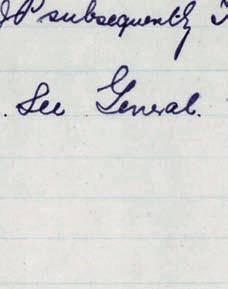 subsequently
. See General.